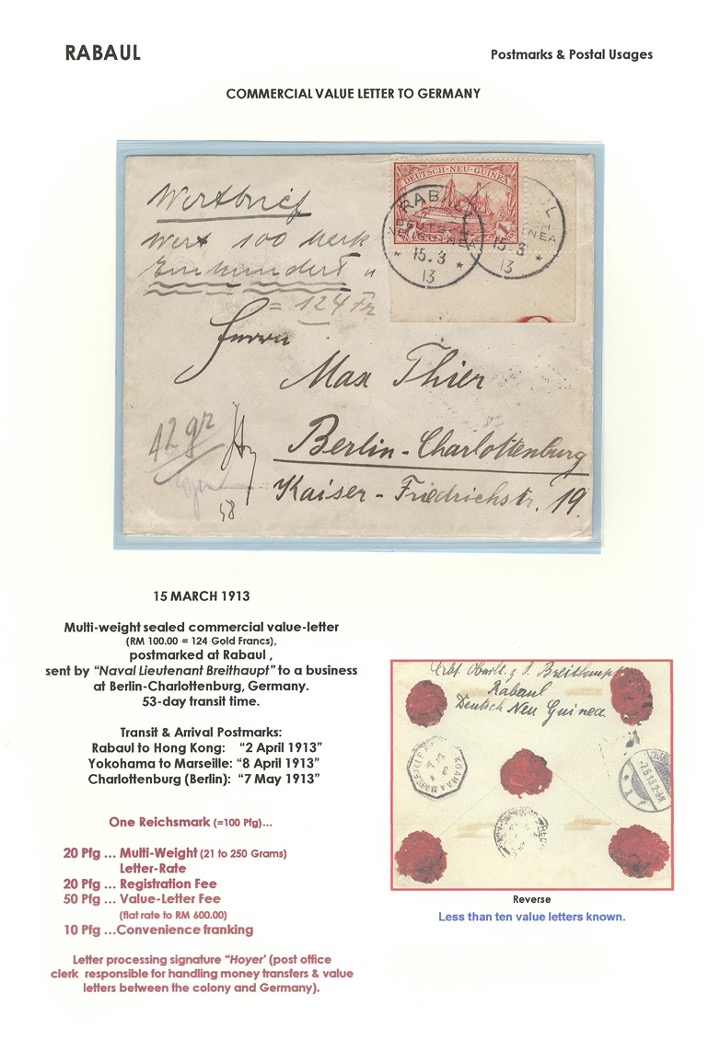 RABAUL
Postmarks & Postal Usages
COMMERCIAL VALUE LETTER TO GERMANY
DEUTSCH-NEU-GUINEA
RABAUL
15.3
13
15.3
13
Wertbrief
Wert 100 Mark
Einhundert "
= 124 Fr
Herrn
Max Thier
Berlin-Charlottenburg
Kaiser-Friedrichstr. 19.
42 gr
58
15 MARCH 1913
Multi-weight sealed commercial value-letter
(RM 100.00 = 124 Gold Francs),
postmarked at Rabaul ,
sent by "Naval Lieutenant Breithaupt" to a business
at Berlin-Charlottenburg, Germany.
53-day transit time.
Transit & Arrival Postmarks:
Rabaul to Hong Kong: "2 April 1913"
Yokohama to Marseille: "8 April 1913"
Charlottenburg (Berlin): "7 May 1913"
One Reichsmark (=100 Pfg)...
20 Pfg ... Multi-Weight (21 to 250 Grams)
Letter-Rate
20 Pfg ... Registration Fee
50 Pfg ... Value-Letter Fee
(flat rate to RM 600.00)
10 Pfg ...Convenience franking
Letter processing signature "Hoyer' (post office
clerk responsible for handling money transfers & value
letters between the colony and Germany).
Oberlt. z. S. Breithaupt
Rabaul
Deutsch Neu Guinea.
Reverse
Less than ten value letters known.